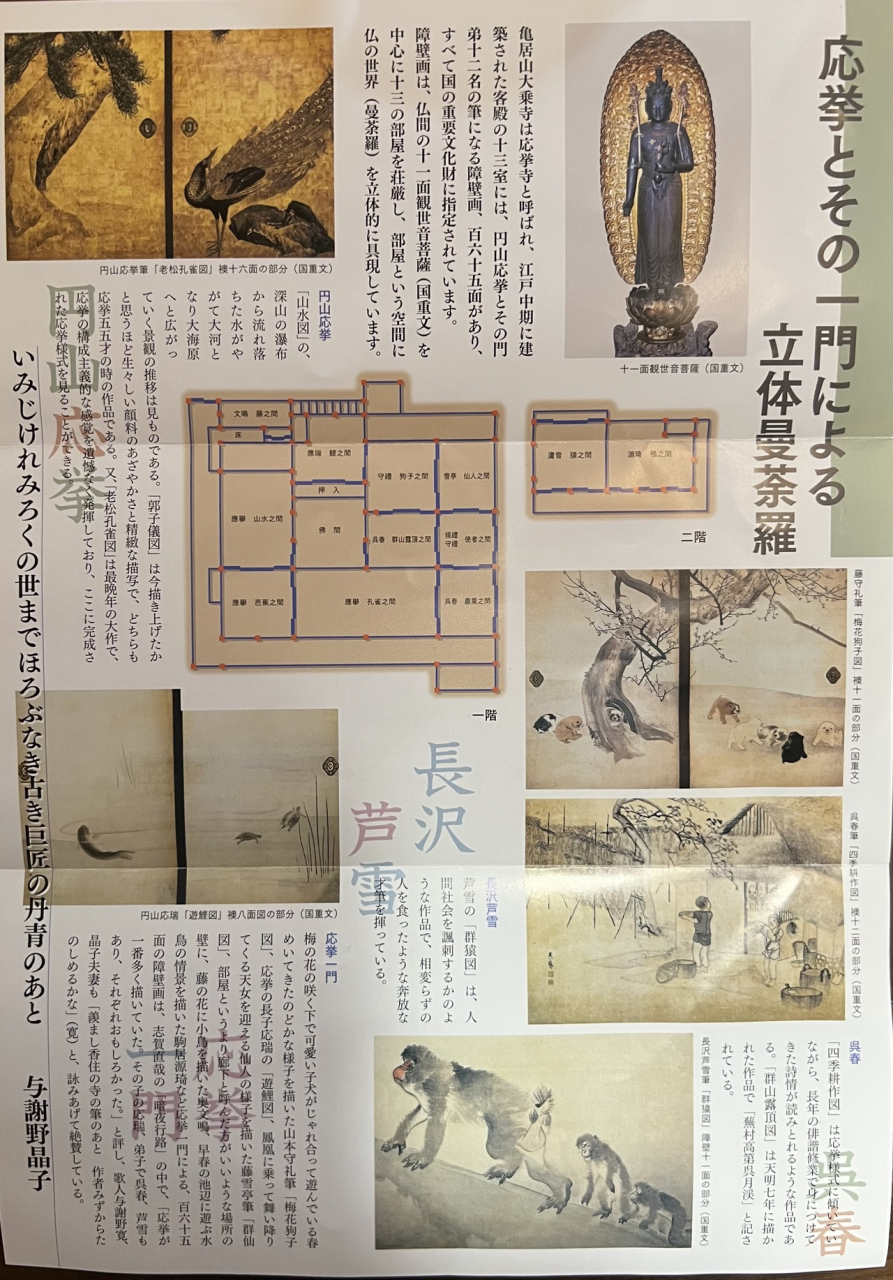 応挙とその一門による
立体曼荼羅
十一面観世音菩薩（国重文）
亀居山大乗寺は応挙寺と呼ばれ、江戸中期に建
築された客殿の十三室には、円山応挙とその門
弟十二名の筆になる障壁画、百六十五面があり、
すべて国の重要文化財に指定されています。
障壁画は、仏間の十一面観世音菩薩（国重文）を
中心に十三の部屋を荘厳し、部屋という空間に
仏の世界（曼荼羅）を立体的に具現しています。
円山応挙筆「老松孔雀図」襖十六面の部分（国重文）
円山応挙
円山応挙
「山水図」の、
深山の瀑布
から流れ落
ちた水がや
がて大河と
なり大海原
へと広がっ
ていく景観の推移は見ものである。「郭子儀図」は今描き上げたか
と思うほど生々しい顔料のあざやかさと精緻な描写で、どちらも
応挙五五才の時の作品である。又、「老松孔雀図」は最晩年の大作で、
応挙の構成主義的な感覚を遺憾なく発揮しており、ここに完成さ
れた応挙様式を見ることができる。
文鳴 藤之間
床
應瑞 鯉之間
押入
應擧 山水之間
佛間
守禮 狗子之間
雪亭 仙人之間
呉春 群山露頂之間
規禮
守禮 使者之間
應擧 芭蕉之間
應擧 孔雀之間
呉春 農業之間
一階
蘆雪 猿之間
源琦 鴨之間
二階
藤守礼筆「梅花狗子図」襖十一面の部分（国重文）
呉春筆「四季耕作図」襖十二面の部分（国重文）
円山応瑞「遊鯉図」襖八面図の部分（国重文）
長沢
芦雪
長沢芦雪
芦雪の「群猿図」は、人
間社会を諷刺するかのよ
うな作品で、相変らずの
人を食ったような奔放な
才筆を揮っている。
長沢芦雪筆「群猿図」障壁十一面の部分（国重文）
呉春
呉春
「四季耕作図」は応挙様式に傾いてい
ながら、長年の俳諧修業で身につけて
きた詩情が読みとれるような作品であ
る。「群山露頂図」は天明七年に描か
れた作品で「蕪村高第呉月渓」と記さ
れている。
応挙一門
梅の花の咲く下で可愛い子犬がじゃれ合って遊んでいる春
めいてきたのどかな様子を描いた山本守礼筆「梅花狗子
図」、応挙の長子応瑞の「遊鯉図」、鳳凰に乗って舞い降り
てくる天女を迎える仙人の様子を描いた藤雪亭筆「群仙
図」、部屋というより廊下と呼んだ方がいいような場所の
壁に、藤の花に小鳥を描いた奥文鳴、早春の池辺に遊ぶ水
鳥の情景を描いた駒居源琦など応挙一門による、百六十五
面の障壁画は、志賀直哉の「暗夜行路」の中で、「応挙が
一番多く描いていた。その子の応瑞、弟子で呉春、芦雪も
あり、それぞれおもしろかった。」と評し、歌人与謝野寛、
晶子夫妻も「羨まし香住の寺の筆のあと 作者みずからた
のしめるかな」（寛）と、詠みあげて絶賛している。
いみじけれみろくの世までほろぶなき古き巨匠の丹青のあと 与謝野晶子